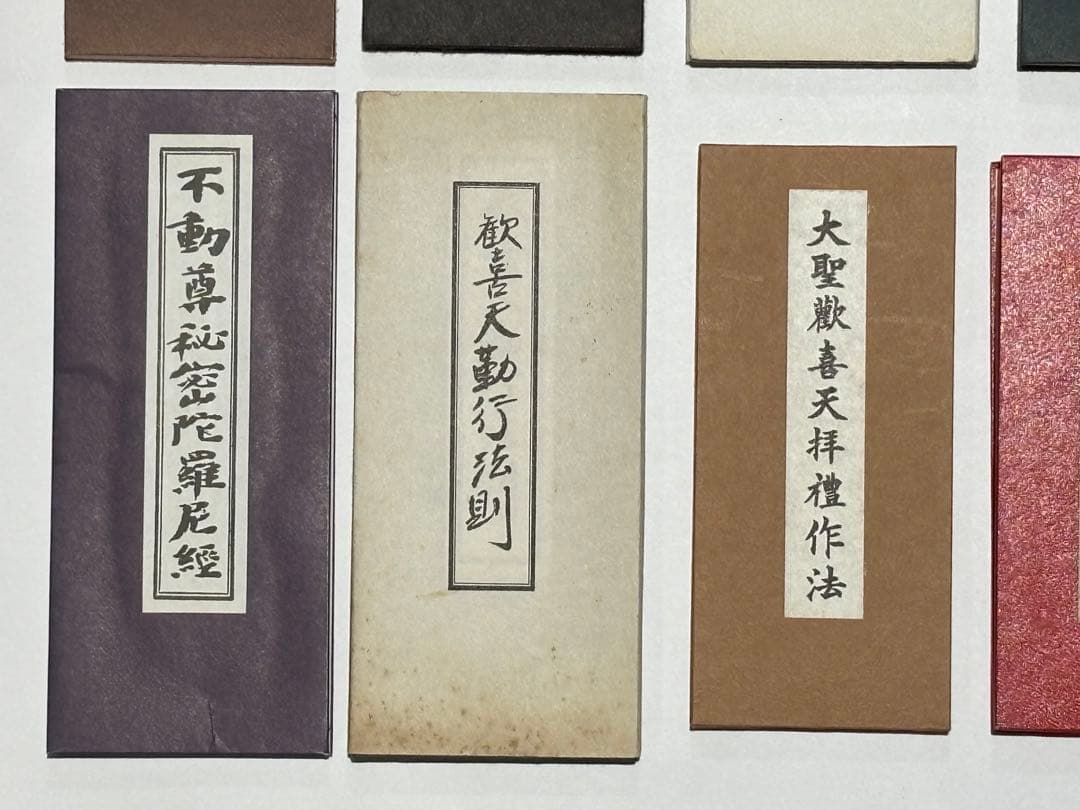 不動尊秘密陀羅尼經
歓喜天勤行法則
大聖歡喜天拝禮作法